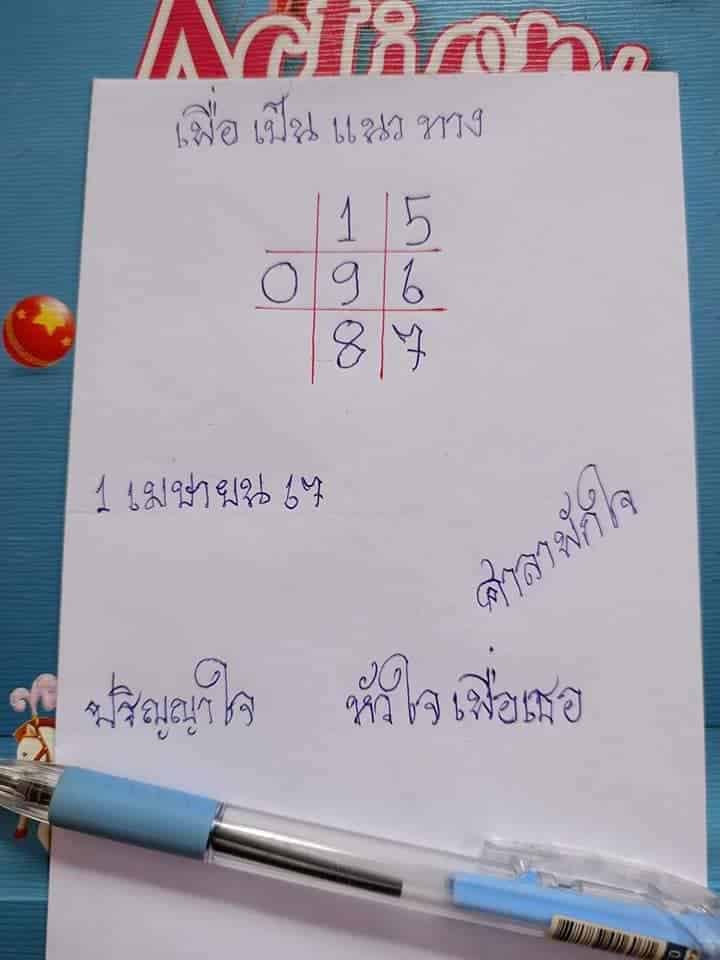 Action
เพื่อ เป็น แนว ทาง
1 5
0 9 6
8 7
1 เมษายน 67
ศาลาพักใจ
ปริญญาใจ
หัวใจ เพื่อเธอ